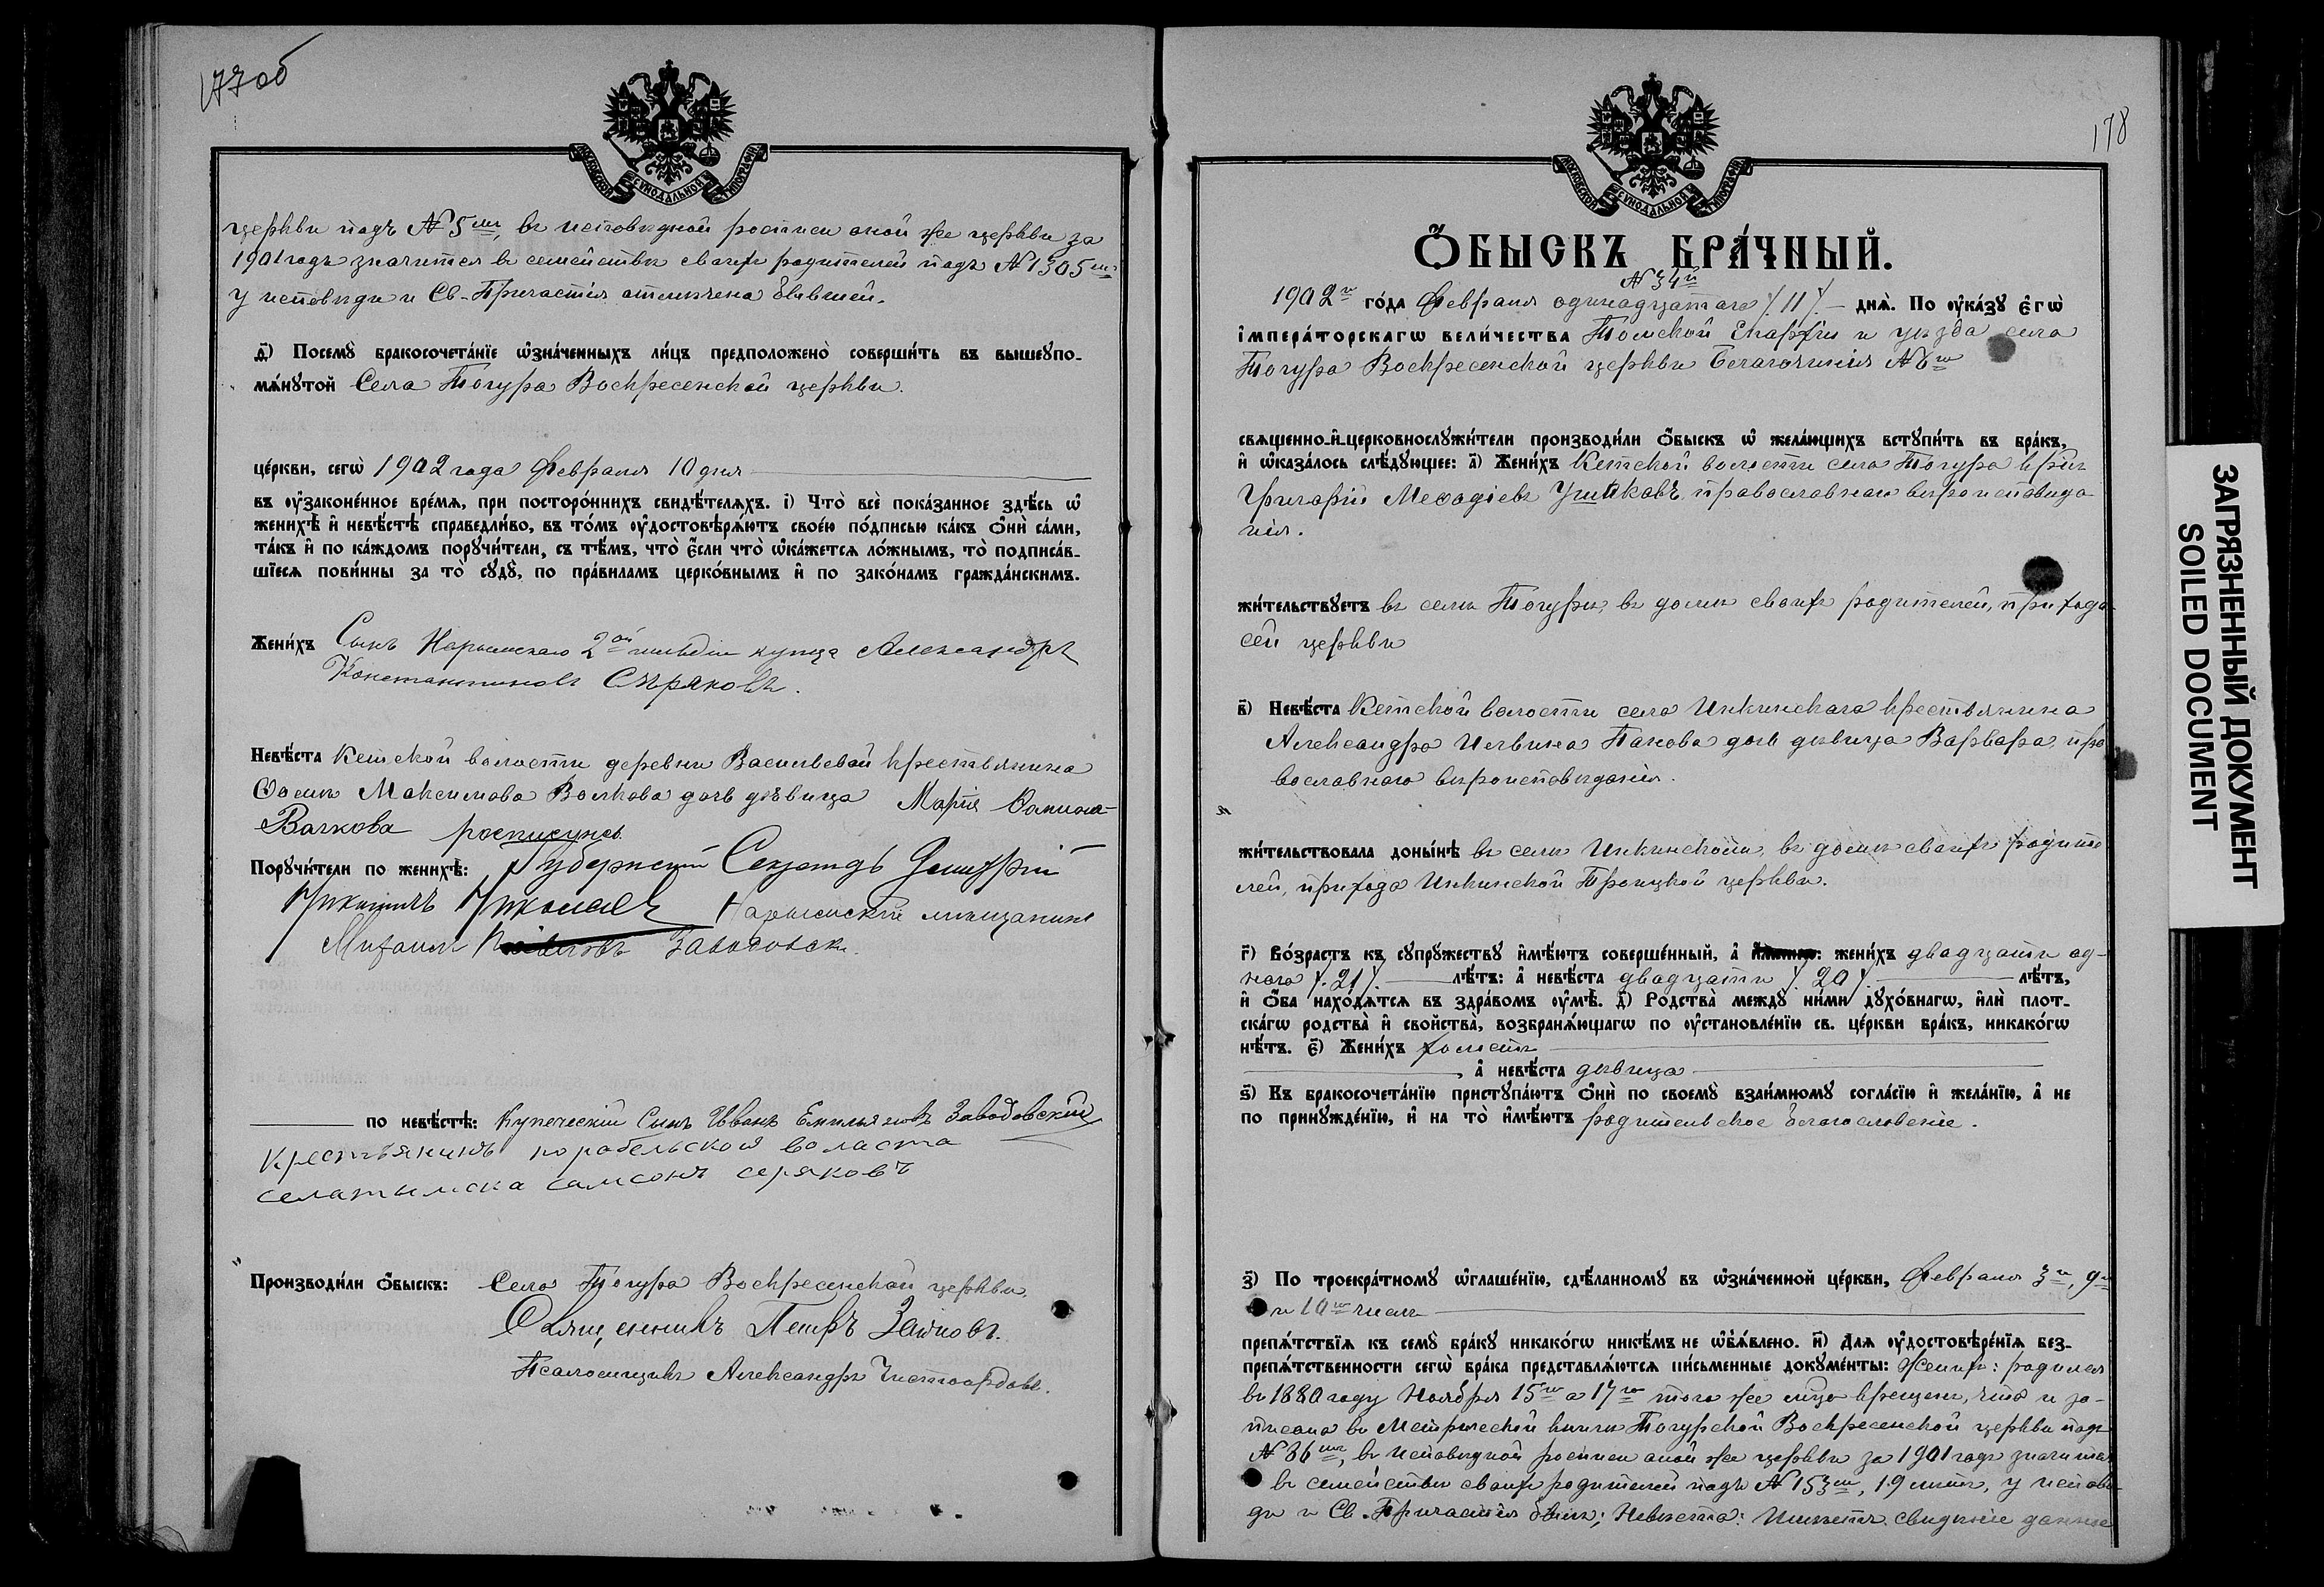 177 об
МОСКОВСКОЙ СѴНОДАЛЬНОЙ ТИПОГРАФІИ
церкви подъ № 5мъ, въ исповѣдной росписи оной же церкви за
1901 годъ значится въ семействѣ своихъ родителей подъ № 1305мъ
у исповѣди и Св. Причастія отмѣчена бывшей.
д҃) Посемꙋ̀ бракосочета́нїе ѡ҆зна́ченныхъ ли́цъ предположено̀ соверши́ть въ вышеꙋпо-
мѧ́нꙋтой Села Тогура Воскресенской церкви.
це́ркви, сегѡ̀ 1902 года Февраля 10 дня
въ ᲂу҆зако́ненное вре́мѧ, при посторо́ннихъ свидѣ́телѧхъ. і҃) Что̀ всѐ пока́занное здѣ́сь ѡ҆
женихѣ̀ и҆ невѣ́стѣ справедли́во, въ то́мъ ᲂу҆достовѣрѧ́ютъ свое́ю по́дписью ка́къ ѻ҆нѝ са́ми,
та́къ и҆ по ка́ждомъ порꙋчи́тели, съ тѣ́мъ, что̀ є҆́сли что̀ ѡ҆ка́жетсѧ ло́жнымъ, то̀ подписа́в-
шїесѧ пови́нны за то̀ сꙋдꙋ̀, по пра́виламъ церко́внымъ и҆ по зако́намъ гражда́нскимъ.
Жени́хъ Сынъ Нарымскаго 2ой гильдіи купца Александръ
Константиновъ Сѣряковъ.
Невѣ́ста Кетской волости деревни Васильевой крестьянина
Ѳомы Максимова Волкова дочь дѣвица Марія Ѳомина
Волкова росписуюсь
Порꙋчи́тели по женихѣ̀: Губернскій Секретарь Дмитрій
Никитичъ Николаевъ Нарымскій мѣщанинъ
Михаилъ Заводовскі
по невѣ́стѣ: Купеческій Сынъ Иванъ Емильяновъ Заводовскій
Крестьянинъ парабельской воласти
села тымска самсонъ серяковъ
Производи́ли ѻ҆́быскъ: Села Тогура Воскресенской церкви
Священникъ Петръ Заѣновъ.
Псаломщикъ Александръ Чистосердовъ.
178
МОСКОВСКОЙ СѴНОДАЛЬНОЙ ТИПОГРАФІИ
Ѻ҆́БЫСКЪ БРА́ЧНЫЙ.
№ 34й
1902го го́да Февраля одинадцатаго /.11/. днѧ̀. По ᲂу҆ка́зꙋ є҆гѡ̀
і҆мпера́торскагѡ вели́чества Томской Епархіи и уѣзда села
Тогура Воскресенской церкви Благочинія № 6го
свѧще́нно-и҆-церковнослꙋжи́тели производи́ли ѻ҆́быскъ ѡ҆ жела́ющихъ встꙋпи́ть въ бра́къ,
и҆ ѡ҆каза́лось слѣ́дꙋющее: а҃) Жени́хъ Кетской волости села Тогура кр-нъ
Григорій Меѳодіевъ Ушаковъ православнаго вѣроисповѣда-
нія.
жи́тельствꙋетъ въ селѣ Тогурѣ, въ домѣ своихъ родителей, прихода
сей церкви
в҃) Невѣ́ста Кетской волости села Инкинскаго крестьянина
Александра Иевлина Панова дочь дѣвица Варвара, пра-
вославнаго вѣроисповѣданія.
жи́тельствовала доны́нѣ въ селѣ Инкинскомъ, въ домѣ своихъ родите-
лей, прихода Инкинской Троицкой церкви.
г҃) Во́зрастъ къ сꙋпрꙋ́жествꙋ и҆мѣ́ютъ соверше́нный, а҆ жени́хъ двадцати од-
ного /.21/. лѣ́тъ: а҆ невѣ́ста двадцати /.20/. лѣ́тъ,
и҆ ѻ҆́ба нахо́дѧтсѧ въ здра́вомъ ᲂу҆мѣ̀. д҃) Родства̀ междꙋ ни́ми дꙋхо́внагѡ, и҆лѝ плот-
ска́гѡ родства̀ и҆ свойства̀, возбранѧ́ющагѡ по ᲂу҆становле́нїю св. це́ркви бра́къ, никако́гѡ
нѣ́тъ. є҃) Жени́хъ холостъ
, а҆ невѣ́ста дѣвица
ѕ҃) Къ бракосочета́нїю пристꙋпа́ютъ ѻ҆нѝ по своемꙋ̀ взаи́мномꙋ согла́сїю и҆ жела́нїю, а҆ не
по принꙋжде́нїю, и҆ на то̀ и҆мѣ́ютъ родительское благословеніе.
з҃) По троекра́тномꙋ ѡ҆глаше́нїю, сдѣ́ланномꙋ въ ѡ҆зна́ченной це́ркви, Февраля 3го, 9го
и 10го чиселъ
препѧ́тствїѧ къ семꙋ̀ бра́кꙋ никако́гѡ никѣ́мъ не ѡ҆б̾ѧ́влено. и҃) Длѧ ᲂу҆достовѣре́нїѧ без-
препѧ́тственности сегѡ̀ бра́ка представлѧ́ютсѧ пи́сьменные докꙋме́нты: Женихъ: родился
въ 1880 году Ноября 15го а 17го того же мѣсяца крещенъ, что и за-
писано въ Метрической книгѣ Тогурской Воскресенской церкви подъ
№ 36мъ, въ исповѣдной росписи оной же церкви за 1901 годъ значится
въ семействѣ своихъ родителей подъ № 153мъ, 19 лѣтъ, у исповѣ-
ди и Св. Причастія былъ; Невѣста: Имѣетъ свидѣніе данное
ЗАГРЯЗНЕННЫЙ ДОКУМЕНТ
SOILED DOCUMENT